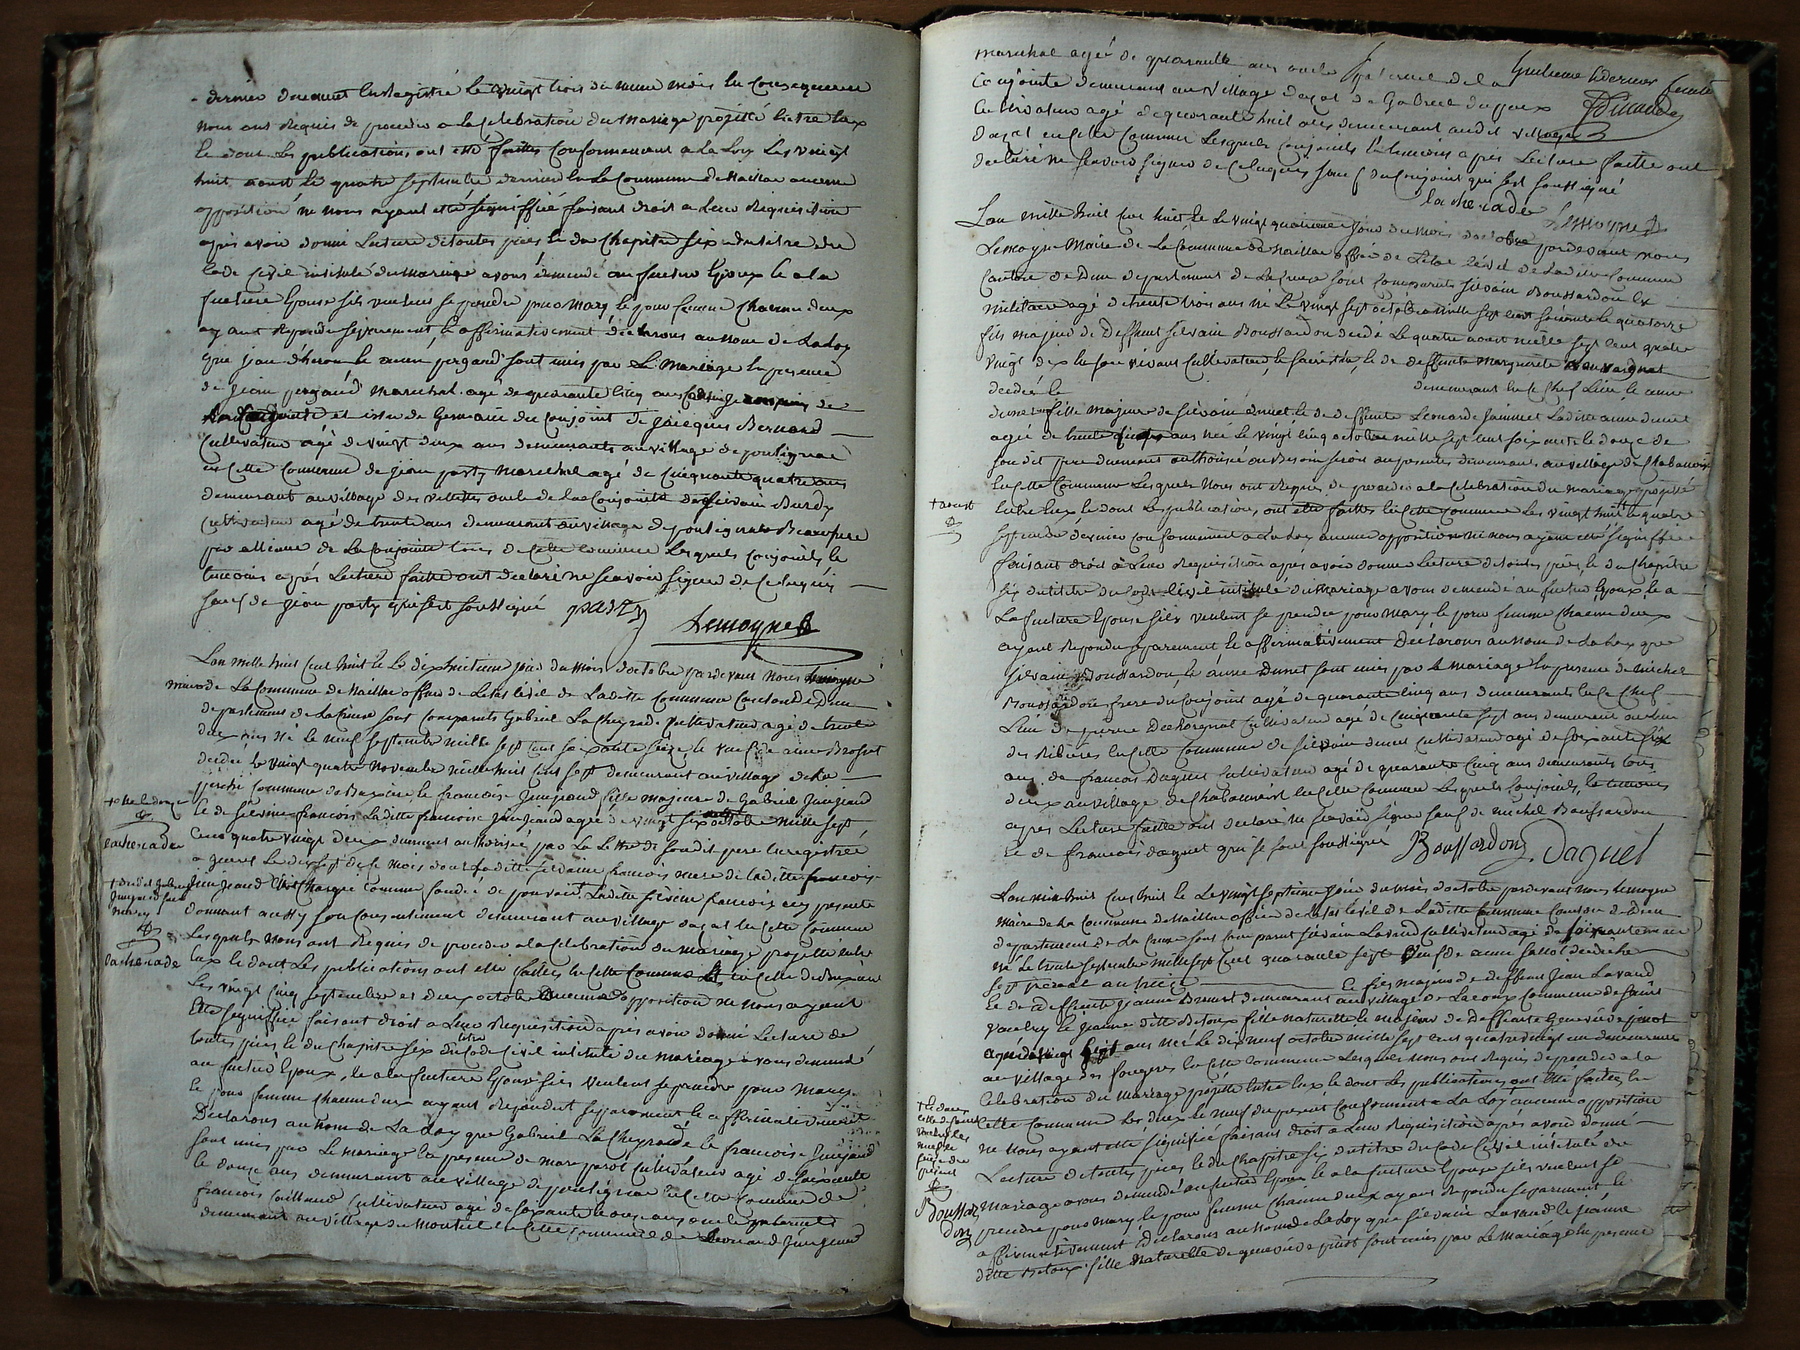 dernier duement Enregistré le vingt trois du même mois En Consequence
nous ont Requis de proceder a la Celebration du Mariage projetté Entre Eux
Et dont les publications ont été faittes Conformement a La Loy Les vingt
huit aoust Et quatre septembre dernier En La Commune de Naillac aucune
opposition ne nous ayant été signiffiée faisant droit a Leur Requisition
après avoir donné Lecture de toutes pièces Et du Chapitre six du titre du
Code Civil intitulé du mariage avons demandé au futur Epoux Et a la
future Epouse s'ils veulent se prendre pour Mary Et pour femme Chacun d'eux
ayant Repondu séparement Et affirmativement déclarons au nom de La Loy
que jean Et anne pergaud sont unis par Le Mariage En presence
de jean pergaud marechal agé de quarante Cinq ans
et issu de Germain du Conjoint de jacques Bernard
Cultivateur agé de vingt deux ans demeurants au village de poulignac
en Cette Commune de jean pasty marechal agé de Cinquante quatre ans
demeurant au village des villettes oncle de La Conjointe de silvain Burdy
Cultivateur agé de trente ans demeurant au village de poulignac Beaufrere
par alliance de La Conjointe tous de Cette Commune Lesquels Conjoints Et
temoins après Lecture faitte ont déclaré ne sçavoir signer de Ce Requis
sauf de jean pasty qui s'est soussigné pasty
Lemoyne
L'an mille huit Cent huit Et Le dixhuitieme jour du Mois d'octobre pardevant Nous Lemoyne
maire de La Commune de Naillac officier de L'etat Civil de Laditte Commune Canton de Dun
departement de La Creuse sont Comparants Gabriel La Cheyrade Cultivateur agé de trente
deux ans Né le neuf septembre mille sept Cent soixante seize Et veuf de anne Brosset
decedée Le vingt quatre Novembre mille huit Cent sept demeurant au village de La
Commune de Bazelat Et francoise jeanjeaud fille majeure de Gabriel jeanjeaud
Et de silvine francois Laditte francoise jeanjeaud agée de vingt six octobre mille sept
Cent quatre vingt deux duement authorisée par La Lettre de sondit pere Enregistrée
a Gueret Le dix sept de Ce mois dont Laditte silvine francois mere de Laditte francoise
jeanjeaud Est Chargée Comme fondée de pouvoir Laditte silvine francois icy presente
donnant aussy son Consentement demeurant au village dazat En Cette Commune
Lesquels Nous ont Requis de proceder a La Celebration du Mariage projetté Entre
Eux Et dont Les publications ont été faittes En Cette Commune Et En Celle de Bazelat
Les vingt Cinq septembre et deux octobre aucune opposition ne nous ayant
Eté signiffiée faisant droit a Leur Requisition après avoir donné Lecture de
toutes pièces Et du Chapitre six du titre du Code Civil intitulé du mariage avons demandé
au futur Epoux, Et a la future Epouse s'ils veulent se prendre pour Mary
Et pour femme Chacun d'eux ayant Repondu séparement Et affirmativement
Declarons au Nom de La Loy que Gabriel La Cheyrade Et francoise jeanjeaud
sont unis par Le mariage En presence de marc parot Cultivateur agé de soixante
Et douze ans demeurant au village de poulignac En Cette Commune de
francois Caillaud Cultivateur agé de soixante Et onze ans oncle paternel
demeurant au village du Monteil En Cette Commune de Leonard jeanjeaud
+ Et Le douze
Lacherade
+ dudit Gabriel
jeanjeaud
Lacherade
marechal agé de quarante ans oncle paternel de La
Conjointe demeurant au village dazat de Gabriel
Cultivateur agé de quarante huit ans demeurant audit village
dazat en Cette Commune Lesquels Conjoints Et temoins après Lecture faitte ont
déclaré ne sçavoir signer de Ce Requis sauf du Conjoint qui s'est soussigné
la che rade Lemoyne
L'an mille huit Cent huit Et Le vingt quatrieme jour du mois d'octobre pardevant nous
Lemoyne Maire de La Commune de Naillac officier de L'etat Civil de Laditte Commune
Canton de Dun departement de La Creuse sont Comparants silvain Boussardon Ex
militaire agé de trente trois ans né Le vingt sept octobre mille sept cent soixante Et quatorze
fils majeur de Deffunt silvain Boussardon decedé Le quatre aout mille sept Cent quatre
vingt dix En son vivant Cultivateur Et et de deffunte Margueritte
decedée le demeurant En Ce Chef Lieu Et anne
dunet fille majeure de silvain dunet Et de deffunte Leonarde jaminet Laditte anne dunet
agée de trente ans Née Le vingt Cinq octobre mille sept Cent soixante Et douze de
sondit pere duement authorisée au Besoin seroit au presentes demeurant au village de Chabannes
En Cette Commune Lesquels Nous ont Requis de proceder a la Celebration du mariage projetté
Entre Eux Et dont Les publications ont eté faittes En Cette Commune Les vingt huit Et quatre
septembre dernier Conformement a La Loy aucune opposition ne nous ayant eté signiffiée
faisant droit a Leur Requisition après avoir donné Lecture de toutes pièces Et du Chapitre
six du titre du Code Civil intitulé du Mariage avons demandé au futur Epoux Et a
La future Epouse s'ils veulent se prendre pour Mary Et pour femme Chacun d'eux
ayant Repondu séparement Et affirmativement Declarons au nom de La Loy que
silvain Boussardon Et anne Dunet sont unis par Le Mariage En presence de michel
Boussardon frere du Conjoint agé de quarante Cinq ans demeurants En Ce Chef
Lieu de pierre Cultivateur agé de Cinquante sept ans demeurant au lieu
des Ribieres En Cette Commune de silvain dunet Cultivateur agé de soixante six
ans de francois Daguet Cultivateur agé de quarante Cinq ans demeurants tous
deux au village de Chabannes En Cette Commune Lesquels Conjoints, Et temoins
après Lecture faitte ont declaré ne sçavoir signer sauf de michel Boussardon
Et de francois daguet qui se sont soussignés Boussardon Daguet
+ aoust
L'an mil huit Cent huit Et Le vingt septieme jour du mois d'octobre pardevant nous Lemoyne
Maire de La Commune de Naillac officier de L'etat Civil de Laditte Commune Canton de Dun
departement de La Creuse sont Comparant silvain Lavaud Cultivateur agé de soixante un an
né Le trente septembre mille sept Cent quarante sept veuf de anne decedée
Et fils majeur de deffunt Jean Lavaud
Et de deffunte jeanne demeurant au village de Lacoux Commune de saint
vaulry Et jeanne ditte Betoux fille naturelle Et majeure de deffunte Genevieve pinot
agée de vingt sept ans née Le dix neuf octobre mille sept Cent quatre vingt un demeurant
au village des fougeres En Cette Commune Lesquels Nous ont Requis de proceder a la
Celebration du mariage projetté Entre Eux Et dont Les publications ont été faittes En
Cette Commune Les deux Et neuf du present Conforment a La Loy aucune opposition
ne Nous ayant eté signiffiée faisant droit a Leur Requisition après avoir donné
Lecture de toutes pièces Et du Chapitre six du titre du Code Civil intitulé du
Mariage avons demandé au futur Epoux Et a la future Epouse s'ils veulent se
prendre pour Mary Et pour femme Chacun d'eux ayant Repondu séparement Et
affirmativement Declarons au Nom de La Loy que silvain Lavaud Et jeanne
ditte Betoux fille Naturelle de genevieve pinot sont unis par Le Mariage En presence
Boussar
don